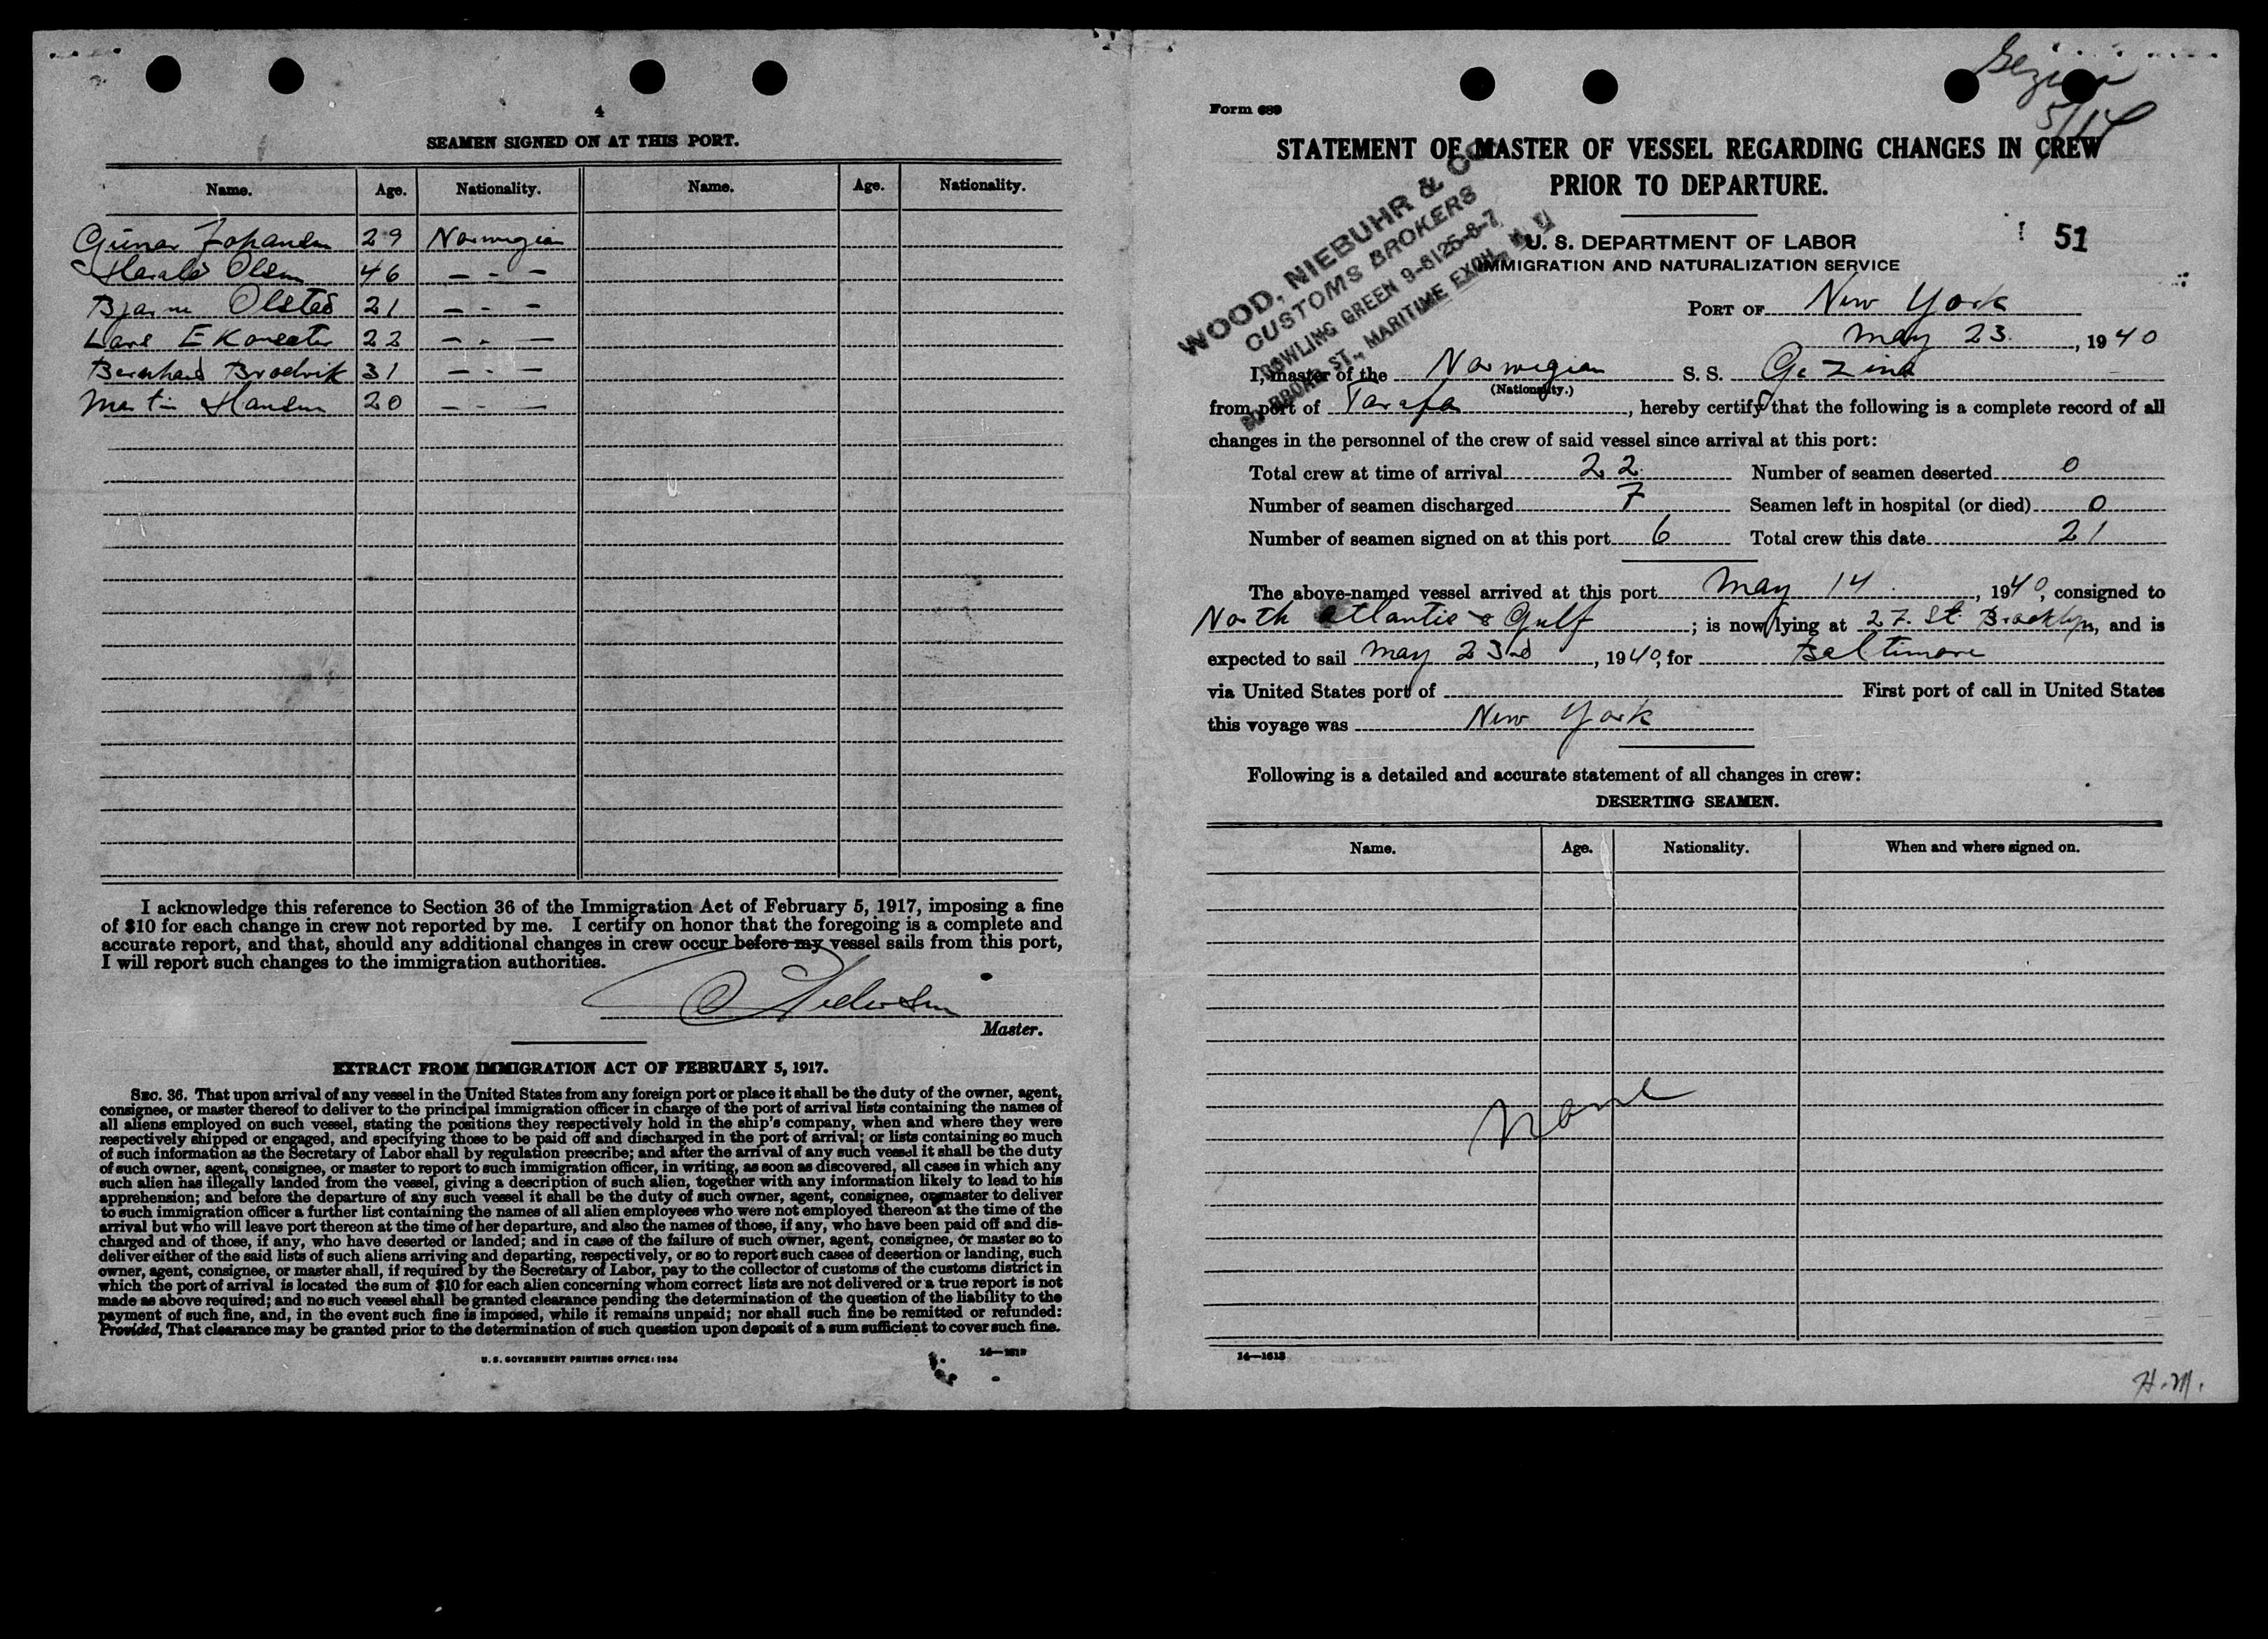 4
SEAMEN SIGNED ON AT THIS PORT.
Name. Age. Nationality. Name. Age. Nationality.
Gunnar Johansen 29 Norwegian
Harald Olsen 46 - - -
Bjarne Olsted 21 - - -
Lars E 22 - - -
Bernhard Brodvik 31 - - -
Martin Hansen 20 - - -
I acknowledge this reference to Section 36 of the Immigration Act of February 5, 1917, imposing a fine
of $10 for each change in crew not reported by me. I certify on honor that the foregoing is a complete and
accurate report, and that, should any additional changes in crew occur before my vessel sails from this port,
I will report such changes to the immigration authorities.
Pedersen
Master.
EXTRACT FROM IMMIGRATION ACT OF FEBRUARY 5, 1917.
SEC. 36. That upon arrival of any vessel in the United States from any foreign port or place it shall be the duty of the owner, agent,
consignee, or master thereof to deliver to the principal immigration officer in charge of the port of arrival lists containing the names of
all aliens employed on such vessel, stating the positions they respectively hold in the ship's company, when and where they were
respectively shipped or engaged, and specifying those to be paid off and discharged in the port of arrival; or lists containing so much
of such information as the Secretary of Labor shall by regulation prescribe; and after the arrival of any such vessel it shall be the duty
of such owner, agent, consignee, or master to report to such immigration officer, in writing, as soon as discovered, all cases in which any
such alien has illegally landed from the vessel, giving a description of such alien, together with any information likely to lead to his
apprehension; and before the departure of any such vessel it shall be the duty of such owner, agent, consignee, or master to deliver
to such immigration officer a further list containing the names of all alien employees who were not employed thereon at the time of the
arrival but who will leave port thereon at the time of her departure, and also the names of those, if any, who have been paid off and dis-
charged and of those, if any, who have deserted or landed; and in case of the failure of such owner, agent, consignee, or master so to
deliver either of the said lists of such aliens arriving and departing, respectively, or so to report such cases of desertion or landing, such
owner, agent, consignee, or master shall, if required by the Secretary of Labor, pay to the collector of customs of the customs district in
which the port of arrival is located the sum of $10 for each alien concerning whom correct lists are not delivered or a true report is not
made as above required; and no such vessel shall be granted clearance pending the determination of the question of the liability to the
payment of such fine, and, in the event such fine is imposed, while it remains unpaid; nor shall such fine be remitted or refunded:
Provided, That clearance may be granted prior to the determination of such question upon deposit of a sum sufficient to cover such fine.
U. S. GOVERNMENT PRINTING OFFICE: 1934
14—1613
Gezina
5/14
Form 689
STATEMENT OF MASTER OF VESSEL REGARDING CHANGES IN CREW
PRIOR TO DEPARTURE.
WOOD, NIEBUHR & CO
CUSTOMS BROKERS
BOWLING GREEN 9-8125-6-7
BROAD ST., MARITIME EXCH., N. Y.
U. S. DEPARTMENT OF LABOR
IMMIGRATION AND NATURALIZATION SERVICE
51
PORT OF New York
May 23, 1940
I, master of the Norwegian S. S. Gezina
(Nationality.)
from port of Tarafa, hereby certify that the following is a complete record of all
changes in the personnel of the crew of said vessel since arrival at this port:
Total crew at time of arrival 22 Number of seamen deserted 0
Number of seamen discharged 7 Seamen left in hospital (or died) 0
Number of seamen signed on at this port 6 Total crew this date 21
The above-named vessel arrived at this port May 14, 1940, consigned to
North Atlantic & Gulf; is now lying at 27. St. Brooklyn, and is
expected to sail May 23rd, 1940, for Baltimore
via United States port of First port of call in United States
this voyage was New York
Following is a detailed and accurate statement of all changes in crew:
DESERTING SEAMEN.
Name. Age. Nationality. When and where signed on.
None
14—1613
H.M.